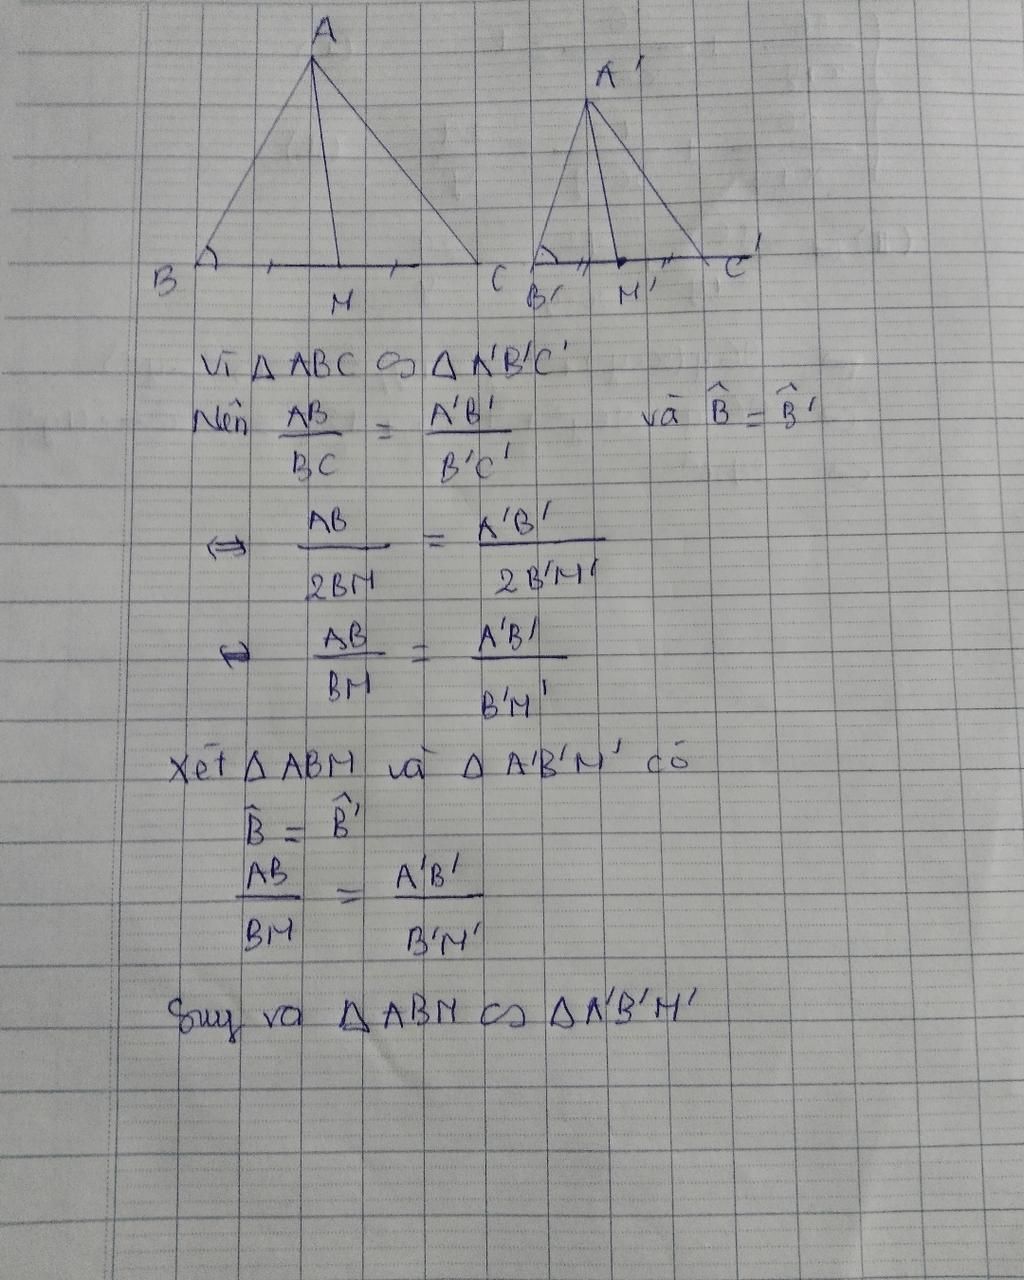 A
A'
B
M
C
B'
M'
C'
Vì Δ ABC ∽ Δ A'B'C'
Nên AB/BC = A'B'/B'C' và B̂ = B̂'
⇔ AB/2BM = A'B'/2B'M'
⇔ AB/BM = A'B'/B'M'
Xét Δ ABM và Δ A'B'M' có
B̂ = B̂'
AB/BM = A'B'/B'M'
Suy ra Δ ABM ∽ Δ A'B'M'